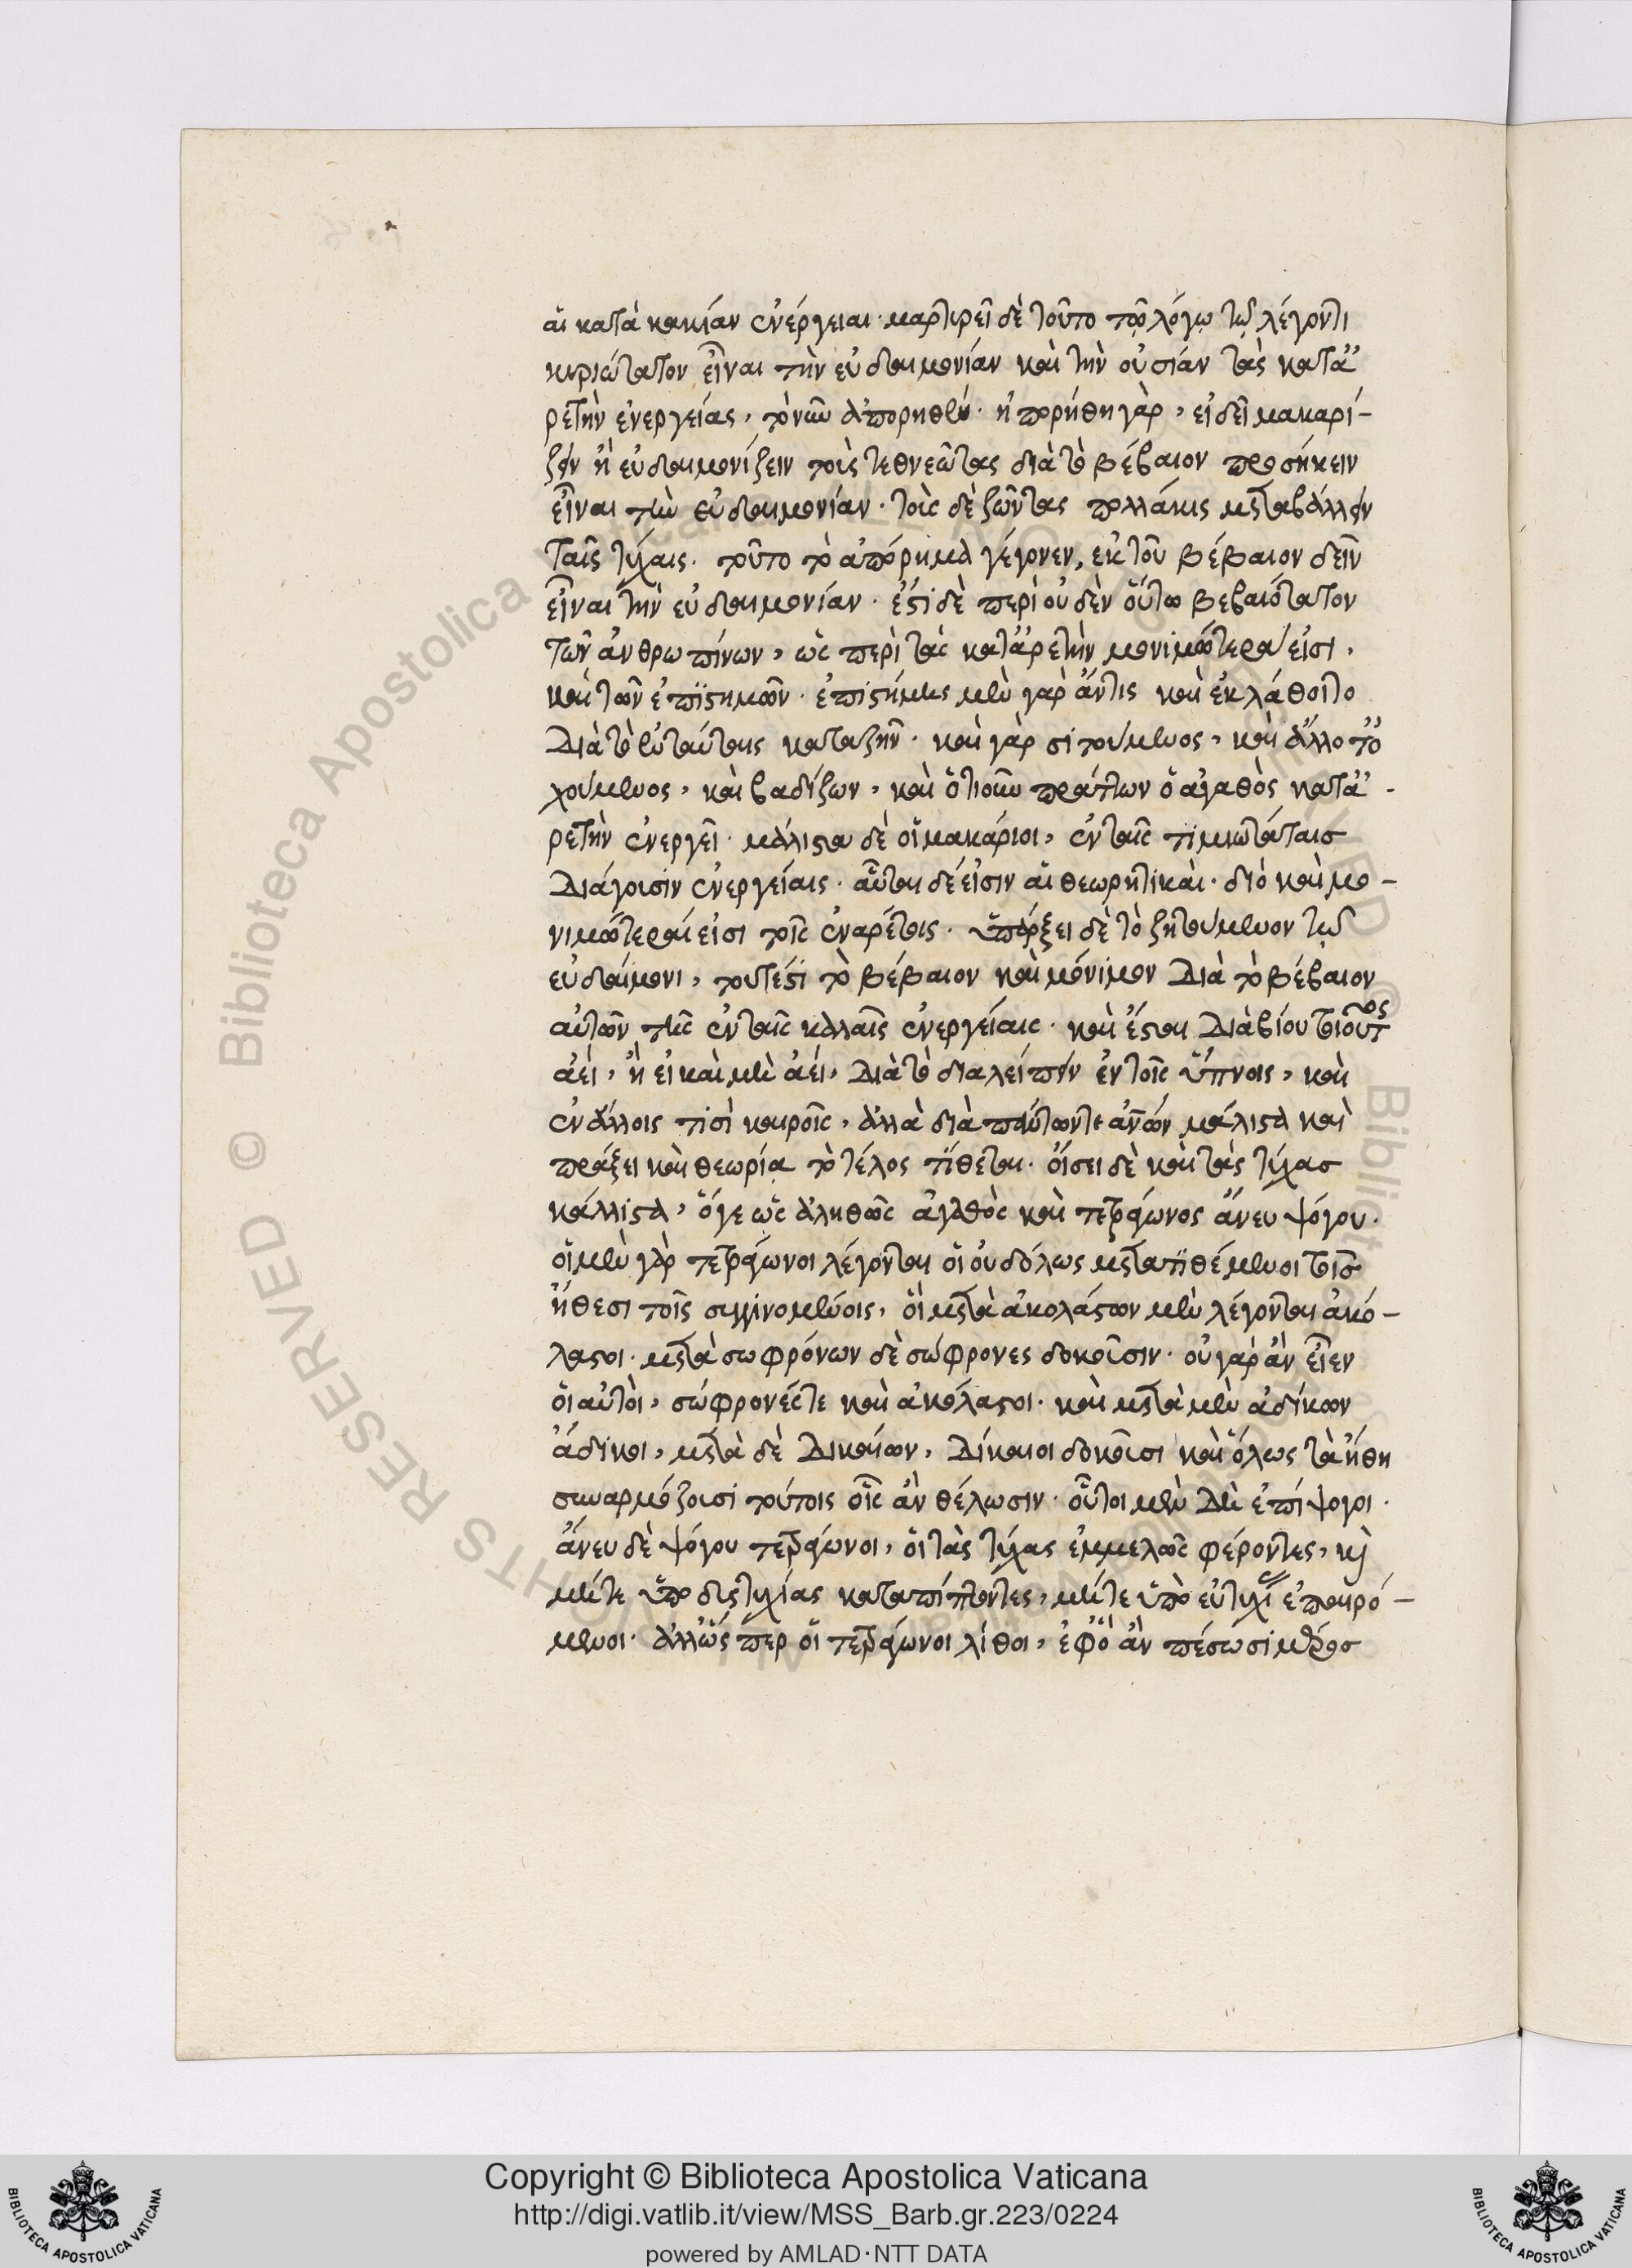 αἱ κατὰ κακίαν ἐνέργειαι· μαρτυρεῖ δὲ τοῦτο τῷ λόγῳ τῷ λέγοντι
κυριώτατον εἶναι τὴν εὐδαιμονίαν καὶ τὴν οὐσίαν τὰς κατα
ρετὴν ἐνεργείας, τὸ νῦν ἀπορηθέν· ἠπορήθη γὰρ, εἰ δεῖ μακαρί-
ζειν ἢ εὐδαιμονίζειν τοὺς τεθνεῶτας διὰ τὸ βέβαιον προσήκειν
εἶναι τὴν εὐδαιμονίαν· τοὺς δὲ ζῶντας πολλάκις μεταβάλλειν
ταῖς τύχαις· τοῦτο τὸ ἀπόρημα γέγονεν, ἐκ τοῦ βέβαιον δεῖν
εἶναι τὴν εὐδαιμονίαν· ἔστι δὲ περὶ οὐδὲν οὕτω βεβαιότατον
τῶν ἀνθρωπίνων, ὡς περὶ τὰς κατἀρετὴν μονιμώτεραι εἰσι,
καὶ τῶν ἐπϊστημῶν· ἐπιστήμης μὲν γὰρ ἄν τις καὶ ἐκλάθοιτο
διὰ τὸ ἐν ταύταις καταζῆν· καὶ γὰρ σιτούμενος, καὶ ἄλλο το
χούμενος, καὶ βαδίζων, καὶ ὁτιοῦν πράττων ὁ ἀγαθὸς κατα-
ρετὴν ἐνεργεῖ· μάλιστα δὲ οἱ μακάριοι, ἐν ταῖς τιμιωτάταις
διάγουσιν ἐνεργείαις· αὗται δέ εἰσιν αἱ θεωρητικαὶ· διὸ καὶ μο-
νιμώτεραί εἰσι τοῖς ἐναρέτοις· ὑπάρξει δὲ τὸ ζητούμενον τῷ
εὐδαίμονι, τουτέστι τὸ βέβαιον καὶ μόνιμον διὰ τὸ βέβαιον
αὐτῶν τῆς ἐν ταῖς καλλαῖς ἐνεργείαις· καὶ ἔσται διὰ βίου τοιοῦτος
ἀεί, ἢ εἰ καὶ μὴ ἀεί, διὰ τὸ διαλείπειν ἐν τοῖς ὕπνοις, καὶ
ἐν ἄλλοις τισὶ καιροῖς, ἀλλὰ διὰ πάντων μάλιστα καὶ
πράξει καὶ θεωρίᾳ τὸ τέλος τίθεται· οἴσει δὲ καὶ τὰς τύχας
κάλλιστα, ὅγε ὡς ἀληθῶς ἀγαθὸς καὶ τετράγωνος ἄνευ ψόγου·
οἱ μὲν γὰρ τετράγωνοι λέγονται οἱ οὐδόλως μετατϊθέμενοι τοῖς
ἤθεσι τοῖς συγγινομένοις, οἳ μετὰ ἀκολάστων μὲν λέγονται ἀκό-
λαστοι· μετὰ σωφρόνων δὲ σώφρονες δοκοῦσιν· οὐ γὰρ ἂν εἶεν
οἱ αὐτοὶ, σώφρονές τε καὶ ἀκόλαστοι· καὶ μετὰ μὲν ἀδίκων
ἄδικοι, μετὰ δὲ δικαίων, δίκαιοι δοκοῦσι καὶ ὅλως τὰ ἤθη
συναρμόζουσι τούτοις οἷς ἂν θέλωσιν· οὗτοι μὲν δὴ ἐπίψογοι·
ἄνευ δὲ ψόγου τετράγωνοι, οἱ τὰς τύχας ἐμμελῶς φέροντες, καὶ
μήτε ὑπο δυςτυχίας καταπίπτοντες, μήτε ὑπὸ εὐτυχίας ἐπαιρό-
μενοι· ἀλλ' ὥς περ οἱ τετράγωνοι λίθοι, ἐφ' ὃ ἂν πέσωσι μέρος
Copyright © Biblioteca Apostolica Vaticana
http://digi.vatlib.it/view/MSS_Barb.gr.223/0224
powered by AMLAD·NTT DATA